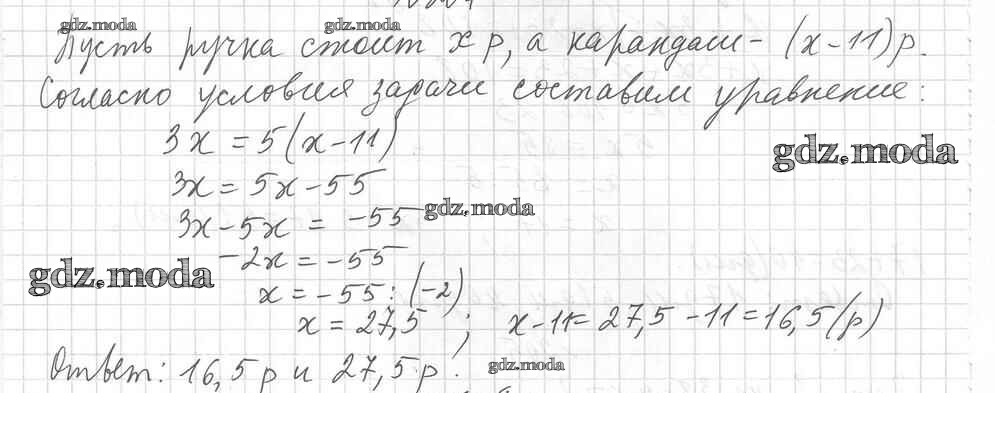 gdz.moda gdz.moda
Пусть ручка стоит x р, а карандаш - (x-11) р.
Согласно условия задачи составим уравнение:
3x = 5(x-11)
gdz.moda
3x = 5x-55
3x-5x = -55 gdz.moda
-2x = -55
gdz.moda
x = -55 : (-2)
x = 27,5 ; x-11= 27,5 -11=16,5 (р)
Ответ: 16,5 р и 27,5 р.
gdz.moda